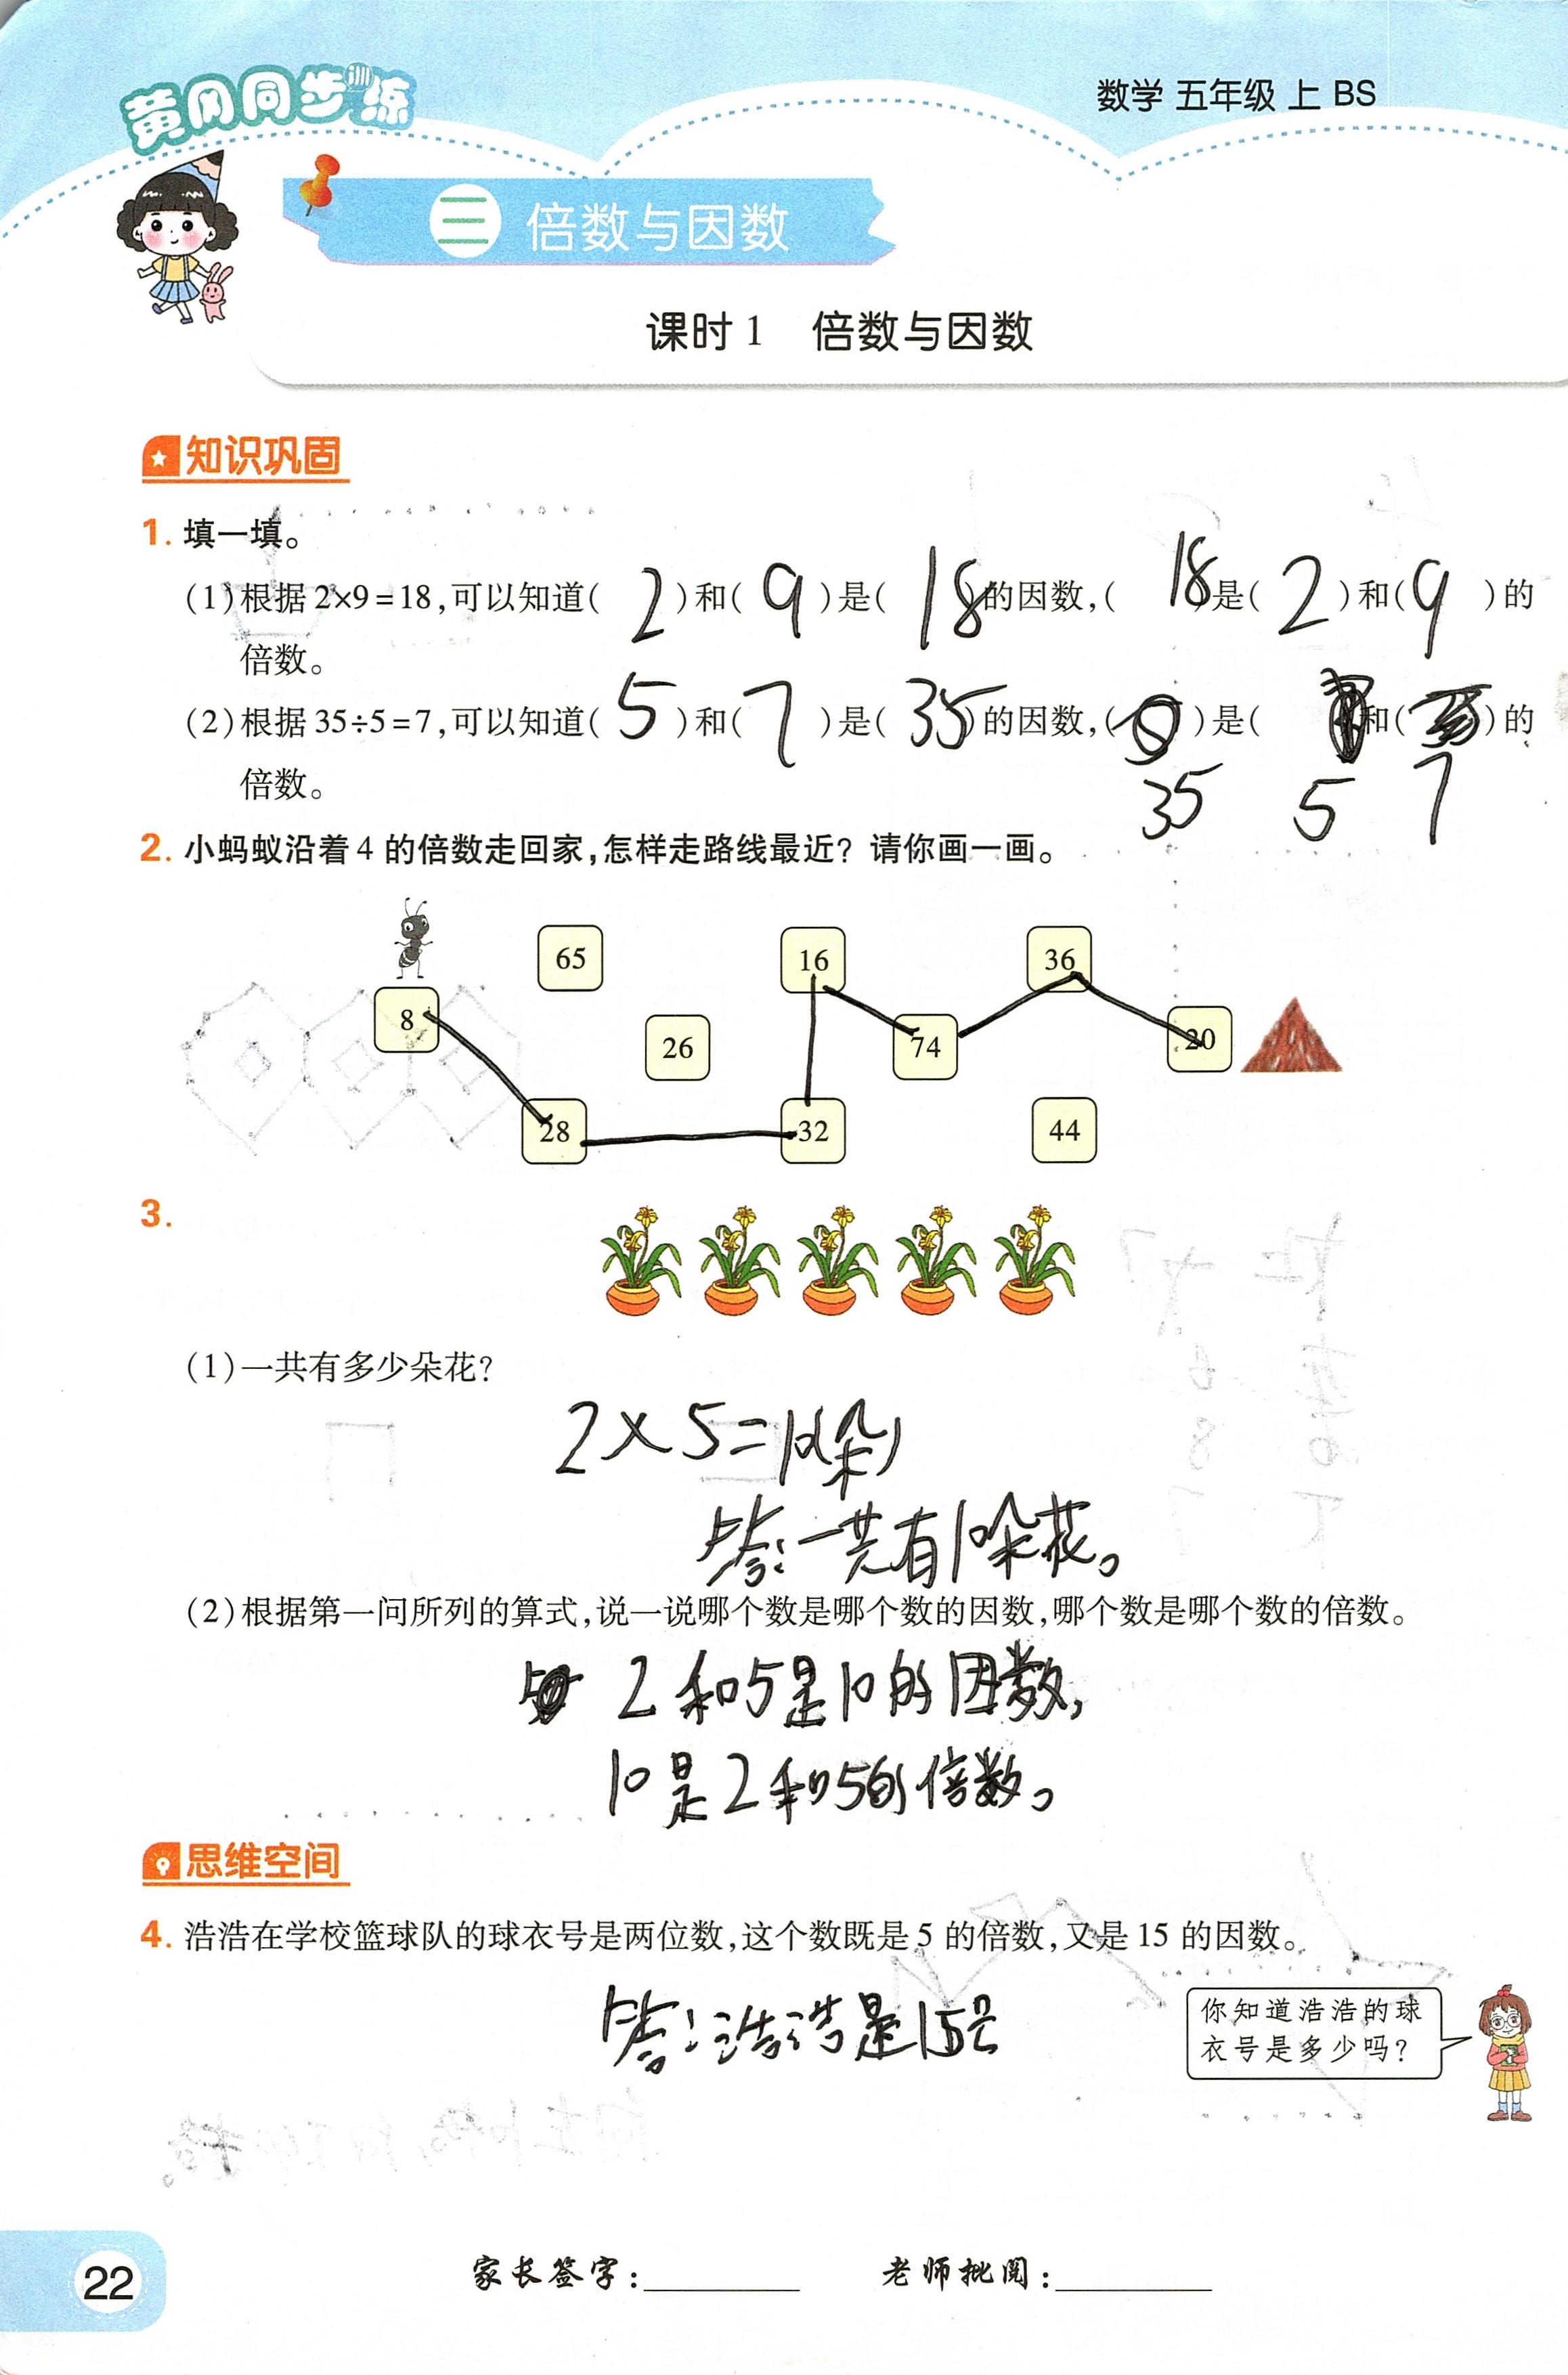 黄冈同步训练
数学 五年级 上 BS
三 倍数与因数
课时1 倍数与因数
知识巩固
1. 填一填。
(1)根据2×9=18,可以知道( 2 )和( 9 )是( 18 )的因数,( 18 )是( 2 )和( 9 )的
倍数。
(2)根据35÷5=7,可以知道( 5 )和( 7 )是( 35 )的因数,( )是( )和( )的
35 5 7
倍数。
2. 小蚂蚁沿着4的倍数走回家,怎样走路线最近?请你画一画。
65 16 36
8 26 74 20
28 32 44
3.
(1)一共有多少朵花?
2×5=10(朵)
答:一共有10朵花。
(2)根据第一问所列的算式,说一说哪个数是哪个数的因数,哪个数是哪个数的倍数。
2和5是10的因数,
10是2和5的倍数。
思维空间
4. 浩浩在学校篮球队的球衣号是两位数,这个数既是5的倍数,又是15的因数。
答:浩浩是15号
你知道浩浩的球
衣号是多少吗?
22
家长签字:
老师批阅: